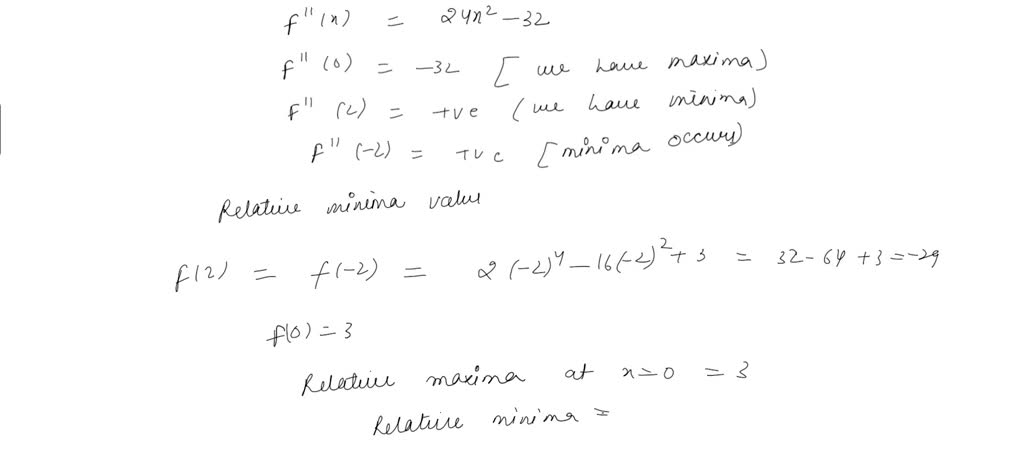 f''(x) = 24x² - 32
f''(0) = -32 [ we have maxima)
f''(2) = +ve (we have minima)
f''(-2) = +ve [minima occurs)
Relative minima value
f(2) = f(-2) = 2(-2)⁴ - 16(-2)² + 3 = 32 - 64 + 3 = -29
f(0) = 3
Relative maxima at x = 0 = 3
Relative minima =